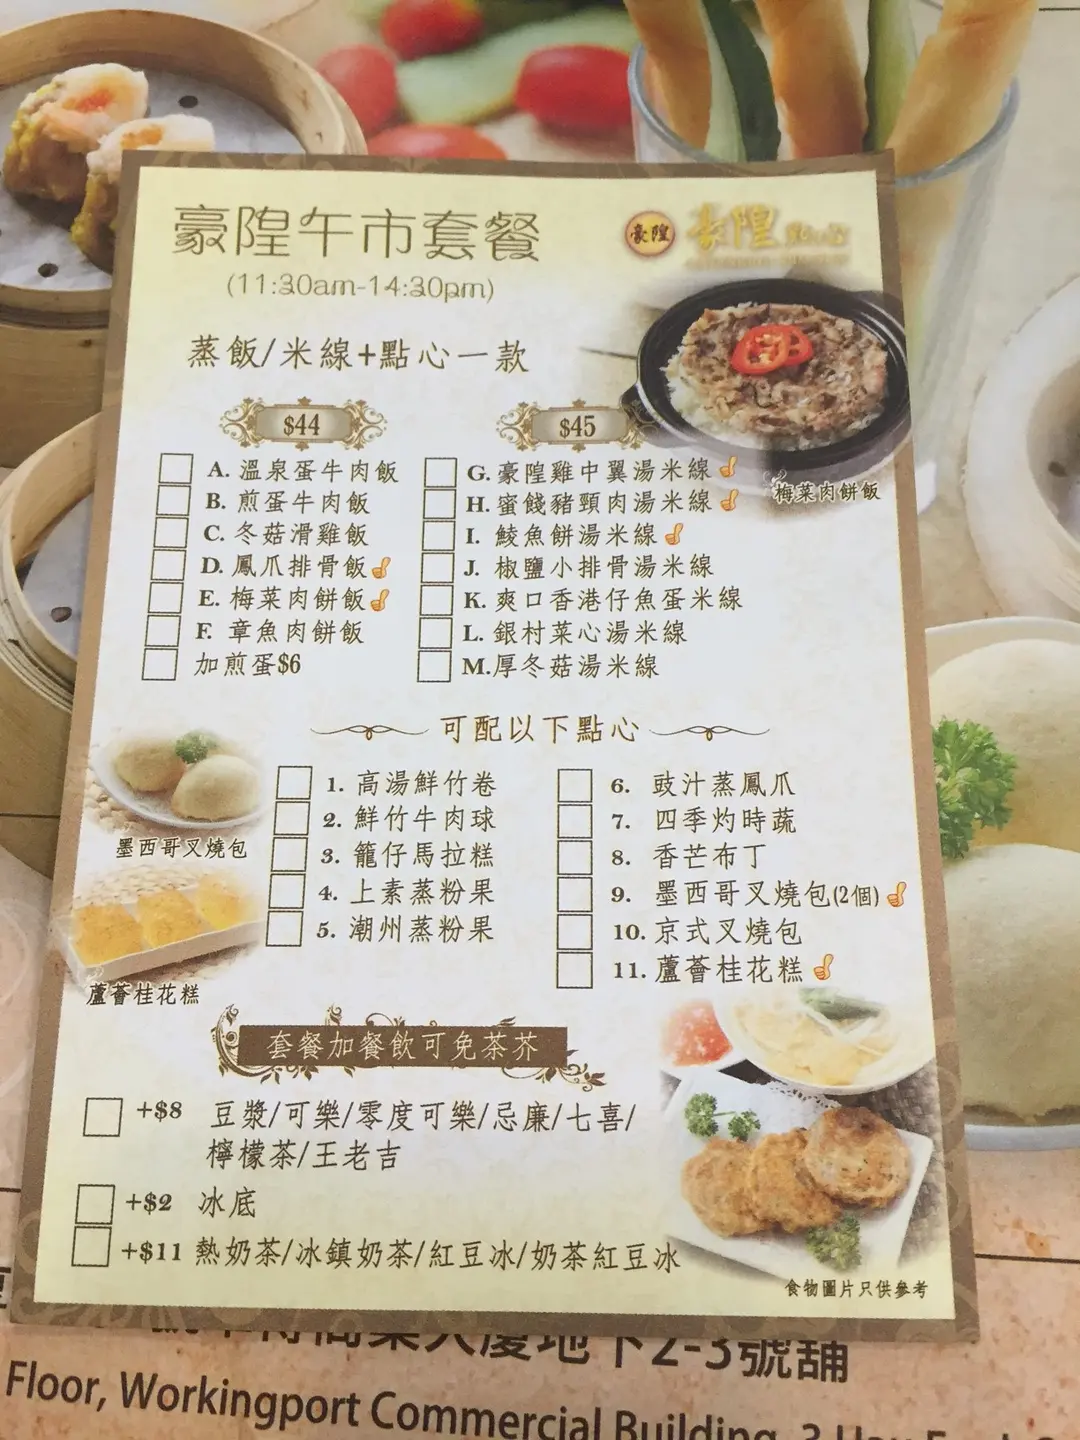 豪隍午市套餐
(11:30am-14:30pm)
豪隍
豪隍點心
蒸飯/米線+點心一款
$44
A. 溫泉蛋牛肉飯
B. 煎蛋牛肉飯
C. 冬菇滑雞飯
D. 鳳爪排骨飯
E. 梅菜肉餅飯
F. 章魚肉餅飯
加煎蛋$6
$45
G. 豪隍雞中翼湯米線
H. 蜜餞豬頸肉湯米線
I. 鯪魚餅湯米線
J. 椒鹽小排骨湯米線
K. 爽口香港仔魚蛋米線
L. 銀村菜心湯米線
M.厚冬菇湯米線
梅菜肉餅飯
可配以下點心
1. 高湯鮮竹卷
2. 鮮竹牛肉球
3. 籠仔馬拉糕
4. 上素蒸粉果
5. 潮州蒸粉果
6. 豉汁蒸鳳爪
7. 四季灼時蔬
8. 香芒布丁
9. 墨西哥叉燒包(2個)
10. 京式叉燒包
11. 蘆薈桂花糕
墨西哥叉燒包
蘆薈桂花糕
套餐加餐飲可免茶芥
+$8 豆漿/可樂/零度可樂/忌廉/七喜/
檸檬茶/王老吉
+$2 冰底
+$11 熱奶茶/冰鎮奶茶/紅豆冰/奶茶紅豆冰
食物圖片只供參考
商業大廈地下2-3號舖
Floor, Workingport Commercial Building, 3